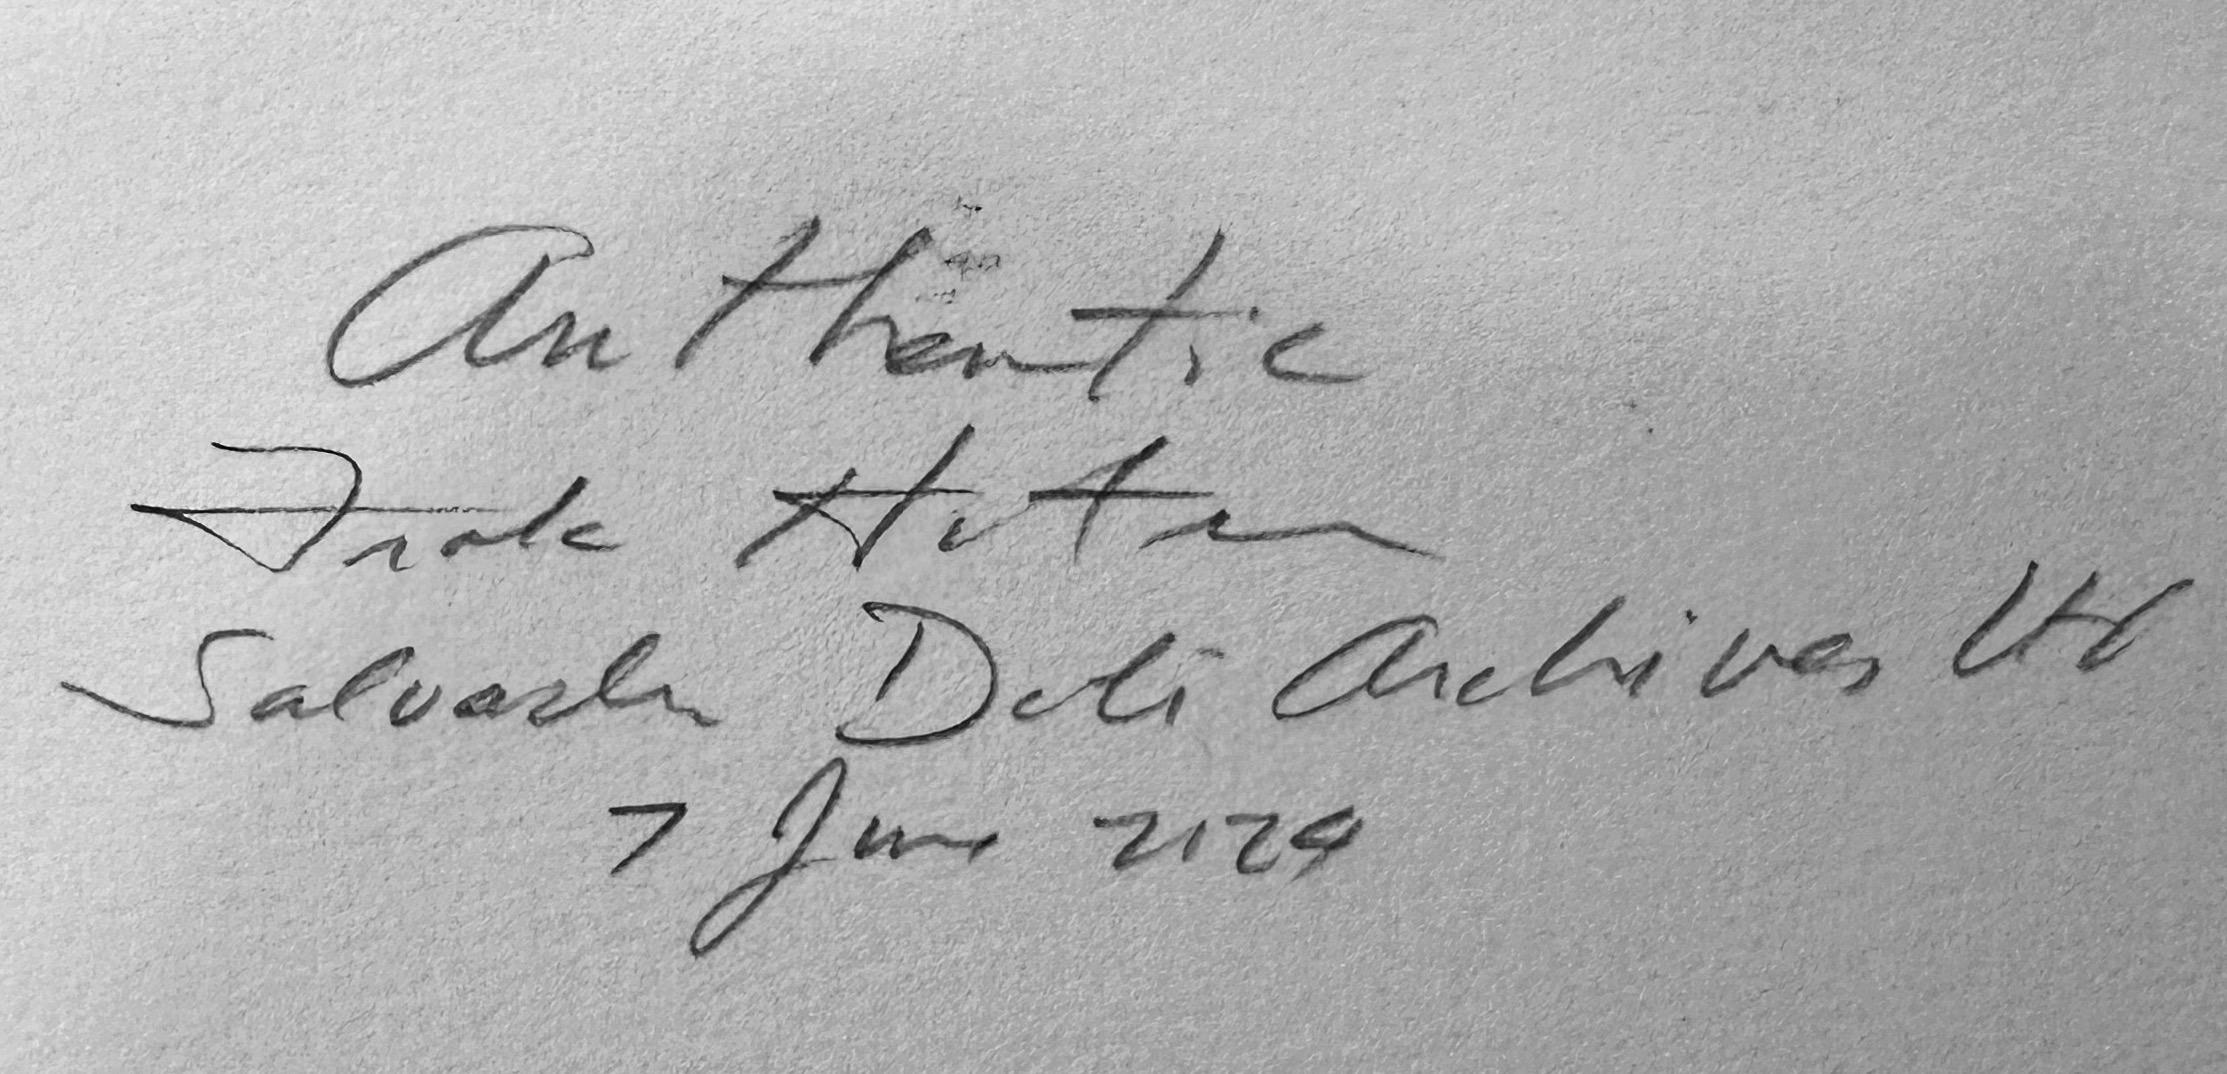 Authentic
Frank Hunter
Salvador Dali Archives Ltd
7 June 2124